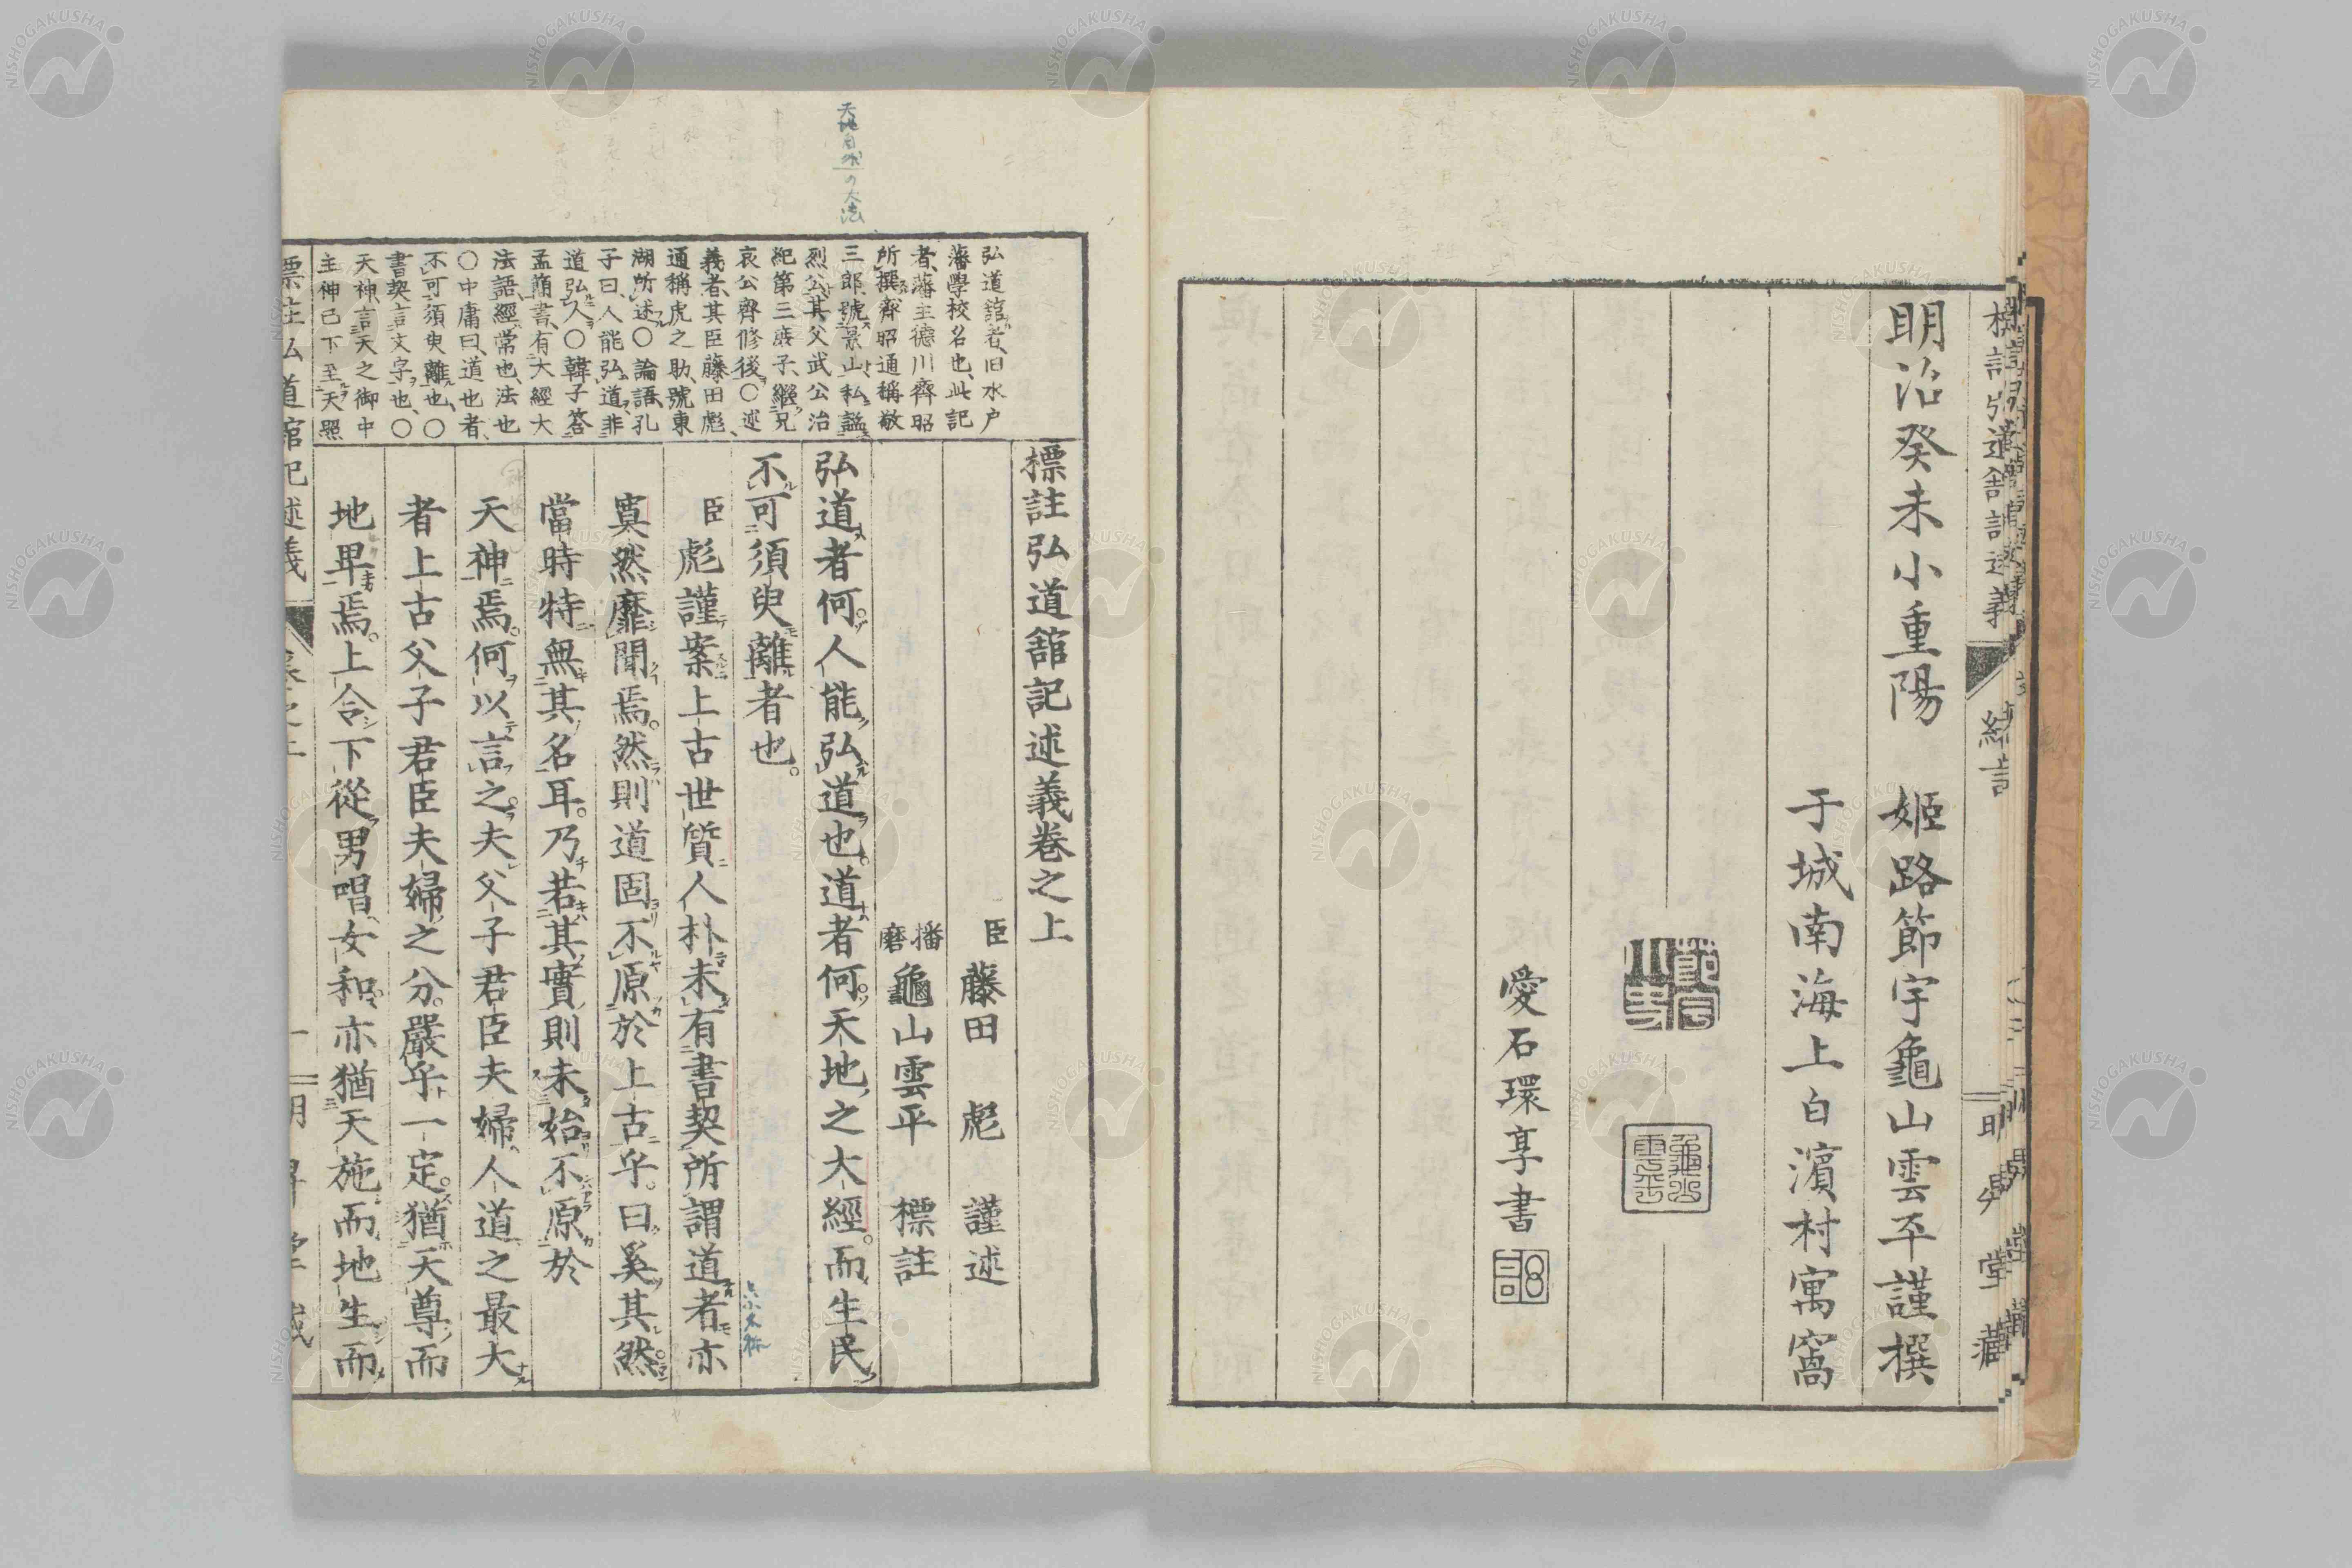 明治癸未小重陽　姬路節宇龜山雲平謹撰
于城南海上白濱村寓窩
愛石環享書
標註弘道館記述義卷之上
臣　藤田　彪　謹述
播磨　龜山雲平　標註
弘道者何人能弘道也。道者何天地之大經。而生民
不可須臾離者也。
臣彪謹案上古世質人朴未有書契所謂道者亦
寞然靡聞焉。然則道固不原於上古乎。曰奚其然
當時特無其名耳。乃若其實則未始不原於
天神焉。何以言之。夫父子君臣夫婦人道之最大
者上古父子君臣夫婦之分。嚴乎一定。猶天尊而
地卑焉。上令下從男唱女和。亦猶天施而地生而
弘道館者、旧水戶
藩學校名也、此記
者、藩主德川齊昭
所撰齊昭通稱敬
三郎、號景山私謚
烈公、其父武公治
紀第三庶子、繼兄
哀公齊脩後〇述
義者、其臣藤田彪、
通稱虎之助、號東
湖所述〇論語、孔
子曰、人能弘道非
道弘人〇韓子答
孟簡書、有大經大
法語、經常也、法也
〇中庸曰、道也者、
不可須臾離也、〇
書契言文字也、〇
天神、言天之御中
主神已下至天照
天地自然の大法
標註弘道館記述義